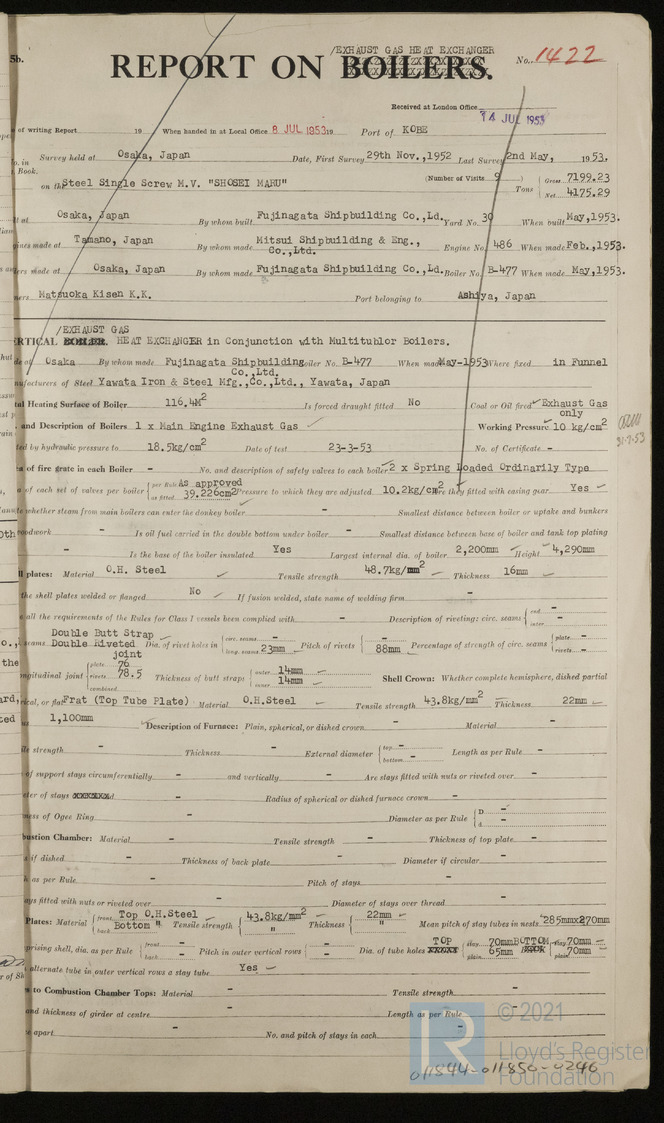 5b.
/EXHAUST GAS HEAT EXCHANGER
REPORT ON BOILERS.
No. 1422
Received at London Office
14 JUL 1953
of writing Report 19 When handed in at Local Office 8 JUL 1953 19 Port of KOBE
o. in Survey held at Osaka, Japan Date, First Survey 29th Nov., 1952 Last Survey 2nd May, 1953.
Book.
(Number of Visits 9 )
on the Steel Single Screw M.V. "SHOSEI MARU" Tons { Gross 7199.23
Net 4175.29
lt at Osaka, Japan By whom built Fujinagata Shipbuilding Co.,Ld. Yard No. 30 When built May,1953.
ines made at Tamano, Japan By whom made Mitsui Shipbuilding & Eng., Co.,Ltd. Engine No. 486 When made Feb.,1953.
ers made at Osaka, Japan By whom made Fujinagata Shipbuilding Co.,Ld. Boiler No. B-477 When made May,1953.
ners Matsuoka Kisen K.K. Port belonging to Ashiya, Japan
/EXHAUST GAS
RTICAL BOILER. HEAT EXCHANGER in Conjunction with Multitublor Boilers.
de at Osaka By whom made Fujinagata Shipbuilding Co.,Ltd. Boiler No. B-477 When made May-1953 Where fixed in Funnel
nufacturers of Steel Yawata Iron & Steel Mfg.,Co.,Ltd., Yawata, Japan
tal Heating Surface of Boiler 116.4M2 Is forced draught fitted No Coal or Oil fired Exhaust Gas only
. and Description of Boilers 1 x Main Engine Exhaust Gas Working Pressure 10 kg/cm2
31-7-53
ted by hydraulic pressure to 18.5kg/cm2 Date of test 23-3-53 No. of Certificate -
a of fire grate in each Boiler - No. and description of safety valves to each boiler 2 x Spring Loaded Ordinarily Type
a of each set of valves per boiler { per Rule As approved
as fitted 39.226cm2 Pressure to which they are adjusted 10.2kg/cm2 Are they fitted with easing gear Yes
te whether steam from main boilers can enter the donkey boiler - Smallest distance between boiler or uptake and bunkers
woodwork - Is oil fuel carried in the double bottom under boiler - Smallest distance between base of boiler and tank top plating
- Is the base of the boiler insulated Yes Largest internal dia. of boiler 2,200mm Height 4,290mm
ll plates: Material O.H. Steel Tensile strength 48.7kg/mm2 Thickness 16mm
the shell plates welded or flanged No If fusion welded, state name of welding firm -
e all the requirements of the Rules for Class I vessels been complied with - Description of riveting: circ. seams { end -
inter -
. seams Double Butt Strap Double Riveted joint Dia. of rivet holes in { circ. seams -
long. seams 23mm Pitch of rivets { -
88mm Percentage of strength of circ. seams { plate -
rivets -
ongitudinal joint { plate 76
rivets 78.5
combined Thickness of butt straps { outer 14mm
inner 14mm Shell Crown: Whether complete hemisphere, dished partial
rical, or flat Frat (Top Tube Plate) Material O.H.Steel Tensile strength 43.8kg/mm2 Thickness 22mm
us 1,100mm Description of Furnace: Plain, spherical, or dished crown - Material -
ile strength - Thickness - External diameter { top -
bottom - Length as per Rule -
of support stays circumferentially - and vertically - Are stays fitted with nuts or riveted over -
ter of stays - Radius of spherical or dished furnace crown -
ness of Ogee Ring - Diameter as per Rule { D -
d -
bustion Chamber: Material - Tensile strength - Thickness of top plate -
s if dished - Thickness of back plate - Diameter if circular -
h as per Rule - Pitch of stays -
ays fitted with nuts or riveted over - Diameter of stays over thread -
Plates: Material { front Top O.H.Steel
back Bottom " Tensile strength { 43.8kg/mm2
" Thickness { 22mm
" Mean pitch of stay tubes in nests 285mmx270mm
prising shell, dia. as per Rule { front -
back - Pitch in outer vertical rows { - Dia. of tube holes TOP { stay 70mm
plain 65mm BOTTOM { stay 70mm
plain 70mm
alternate tube in outer vertical rows a stay tube Yes
n to Combustion Chamber Tops: Material - Tensile strength -
and thickness of girder at centre - Length as per Rule -
e apart - No. and pitch of stays in each -
© 2021
Lloyd's Register
Foundation
011844-011850-0246